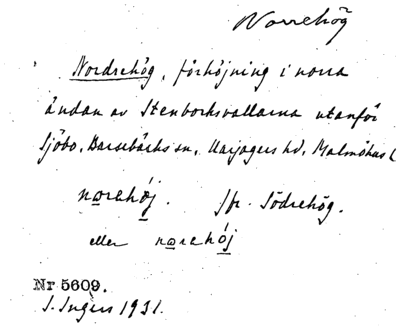 Norrehög
Nordrehög, förhöjning i norra
ändan av Stenbocksvallarna utanför
Sjöbo, Barsebäcks sn, Harjagers hd, Malmöhus l
nọrehọ́j. Jfr. Södrehög.
eller nọrehọ́j
Nr 5609.
I. Ingers 1931.